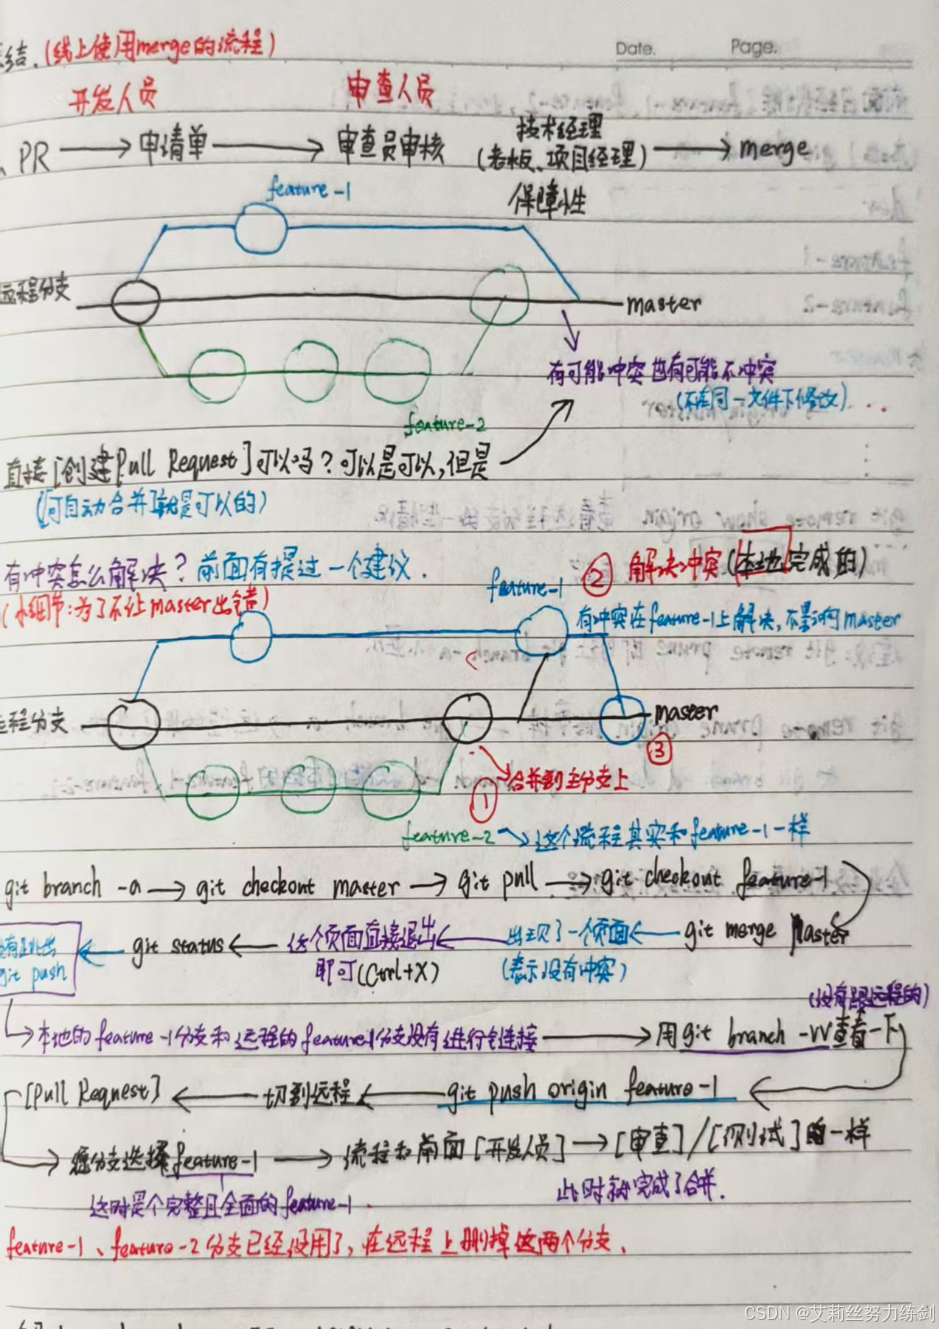 结.(线上使用merge的流程)
Date. Page.
开发人员 审查人员
PR → 申请单 → 审查员审核 技术经理 (老板、项目经理) 保障性 → merge
feature-1
远程分支 master
有可能冲突也有可能不冲突
(不在同一文件下修改)
feature-2
直接[创建Pull Request]可以吗?可以是可以,但是
(可自动合并了就是可以的)
有冲突怎么解决?前面有提过一个建议.
② 解决冲突(本地完成的)
(小细节:为了不让master出错)
feature-1
有冲突在feature-1上解决,不影响master
程分支 master
③
① 合并到主分支上
feature-2 → 这个流程其实和feature-1一样
git branch -a → git checkout master → git pull → git checkout feature-1
git merge master ← 出现了一个页面 (表示没有冲突) ← 这个页面直接退出即可(Ctrl+X) ← git status
git push
(没有跟远程的)
本地的feature-1分支和远程的feature-1分支没有进行连接 → 用git branch -vv查看一下
git push origin feature-1 ← 切到远程 ← [Pull Request]
源分支选择feature-1 → 流程和前面[开发人员] → [审查]/[测试]的一样
这时是个完整且全面的feature-1. 此时就完成了合并.
feature-1、feature-2分支已经没用了,在远程上删掉这两个分支.
CSDN @艾莉丝努力练剑